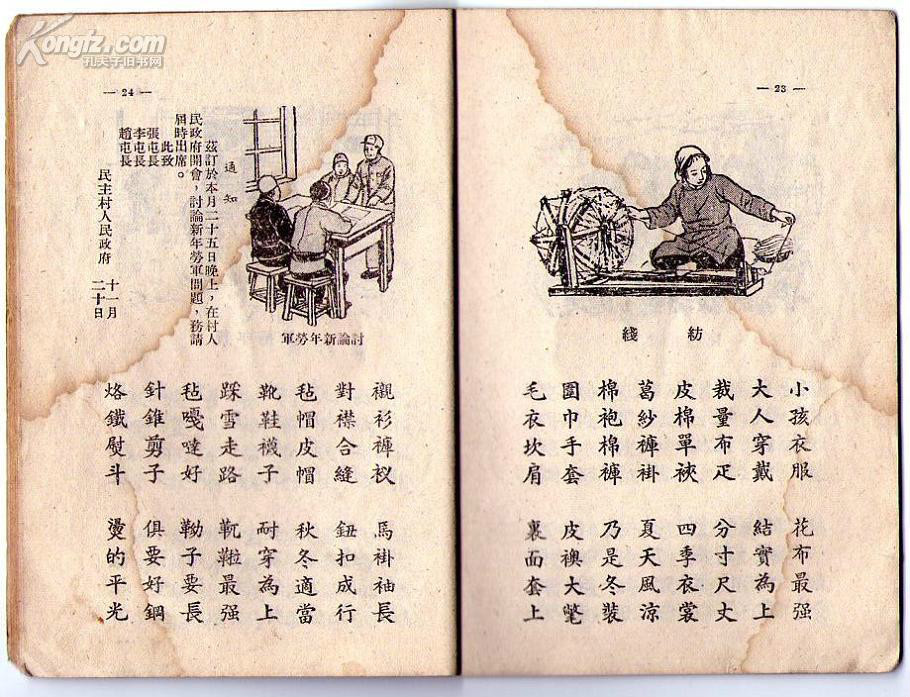 Kongfz.com
孔夫子旧书网
— 23 —
紡綫
小孩衣服 花布最强
大人穿戴 結實為上
裁量布疋 分寸尺丈
皮棉單裌 四季衣裳
葛紗褲褂 夏天風涼
棉袍棉褲 乃是冬裝
圍巾手套 皮襖大氅
毛衣坎肩 裏面套上
— 24 —
討論新年勞軍
通知
茲訂於本月二十五日晚上，在村人
民政府開會，討論新年勞軍問題，務請
屆時出席。
此致
張屯長
李屯長
趙屯長
民主村人民政府
十一月
二十日
襯衫褲衩 馬褂袖長
對襟合縫 鈕扣成行
毡帽皮帽 秋冬適當
靴鞋襪子 耐穿為上
踩雪走路 靰鞡最强
毡嘎噠好 靿子要長
針錐剪子 俱要好鋼
烙鐵熨斗 燙的平光